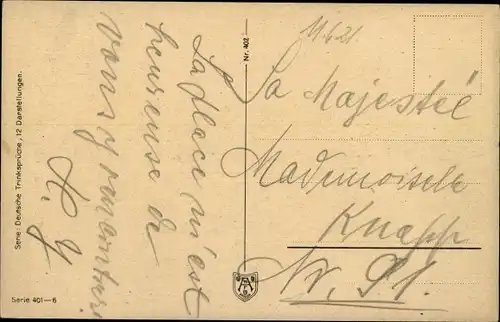 11.6.21.
Sa Majesté
Mademoiselle
Knapp
Nr. 91.
La place m'est
heureuse de
vous y rencontrer.
H. Y
Nr. 402
Serie: Deutsche Trinksprüche, 12 Darstellungen.
Serie 401—6